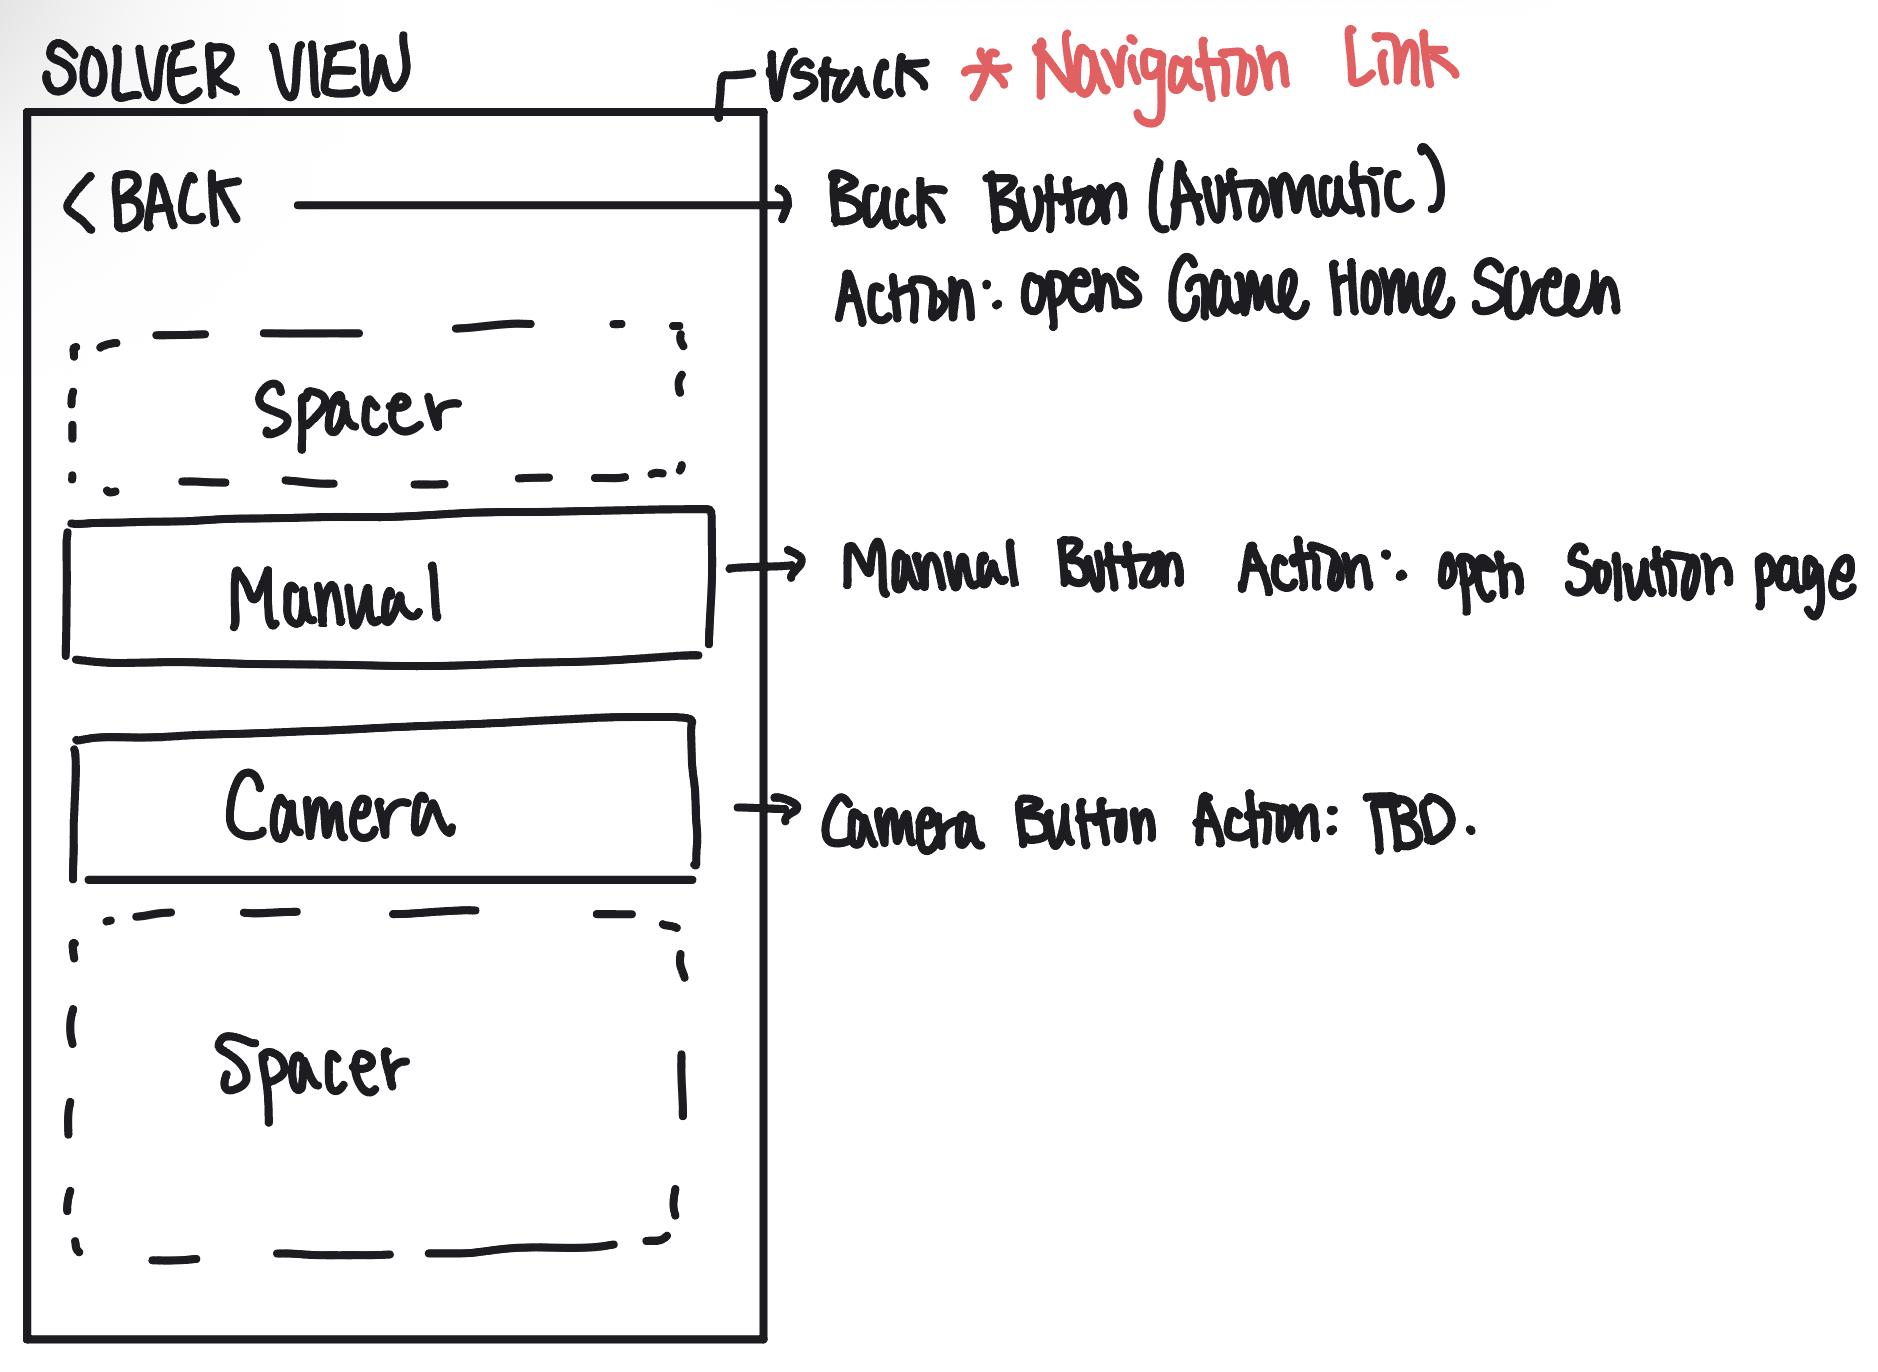 SOLVER VIEW
Vstack * Navigation Link
< BACK
Back Button (Automatic)
Action: opens Game Home Screen
Spacer
Manual
Manual Button Action: open Solution page
Camera
Camera Button Action: TBD.
Spacer